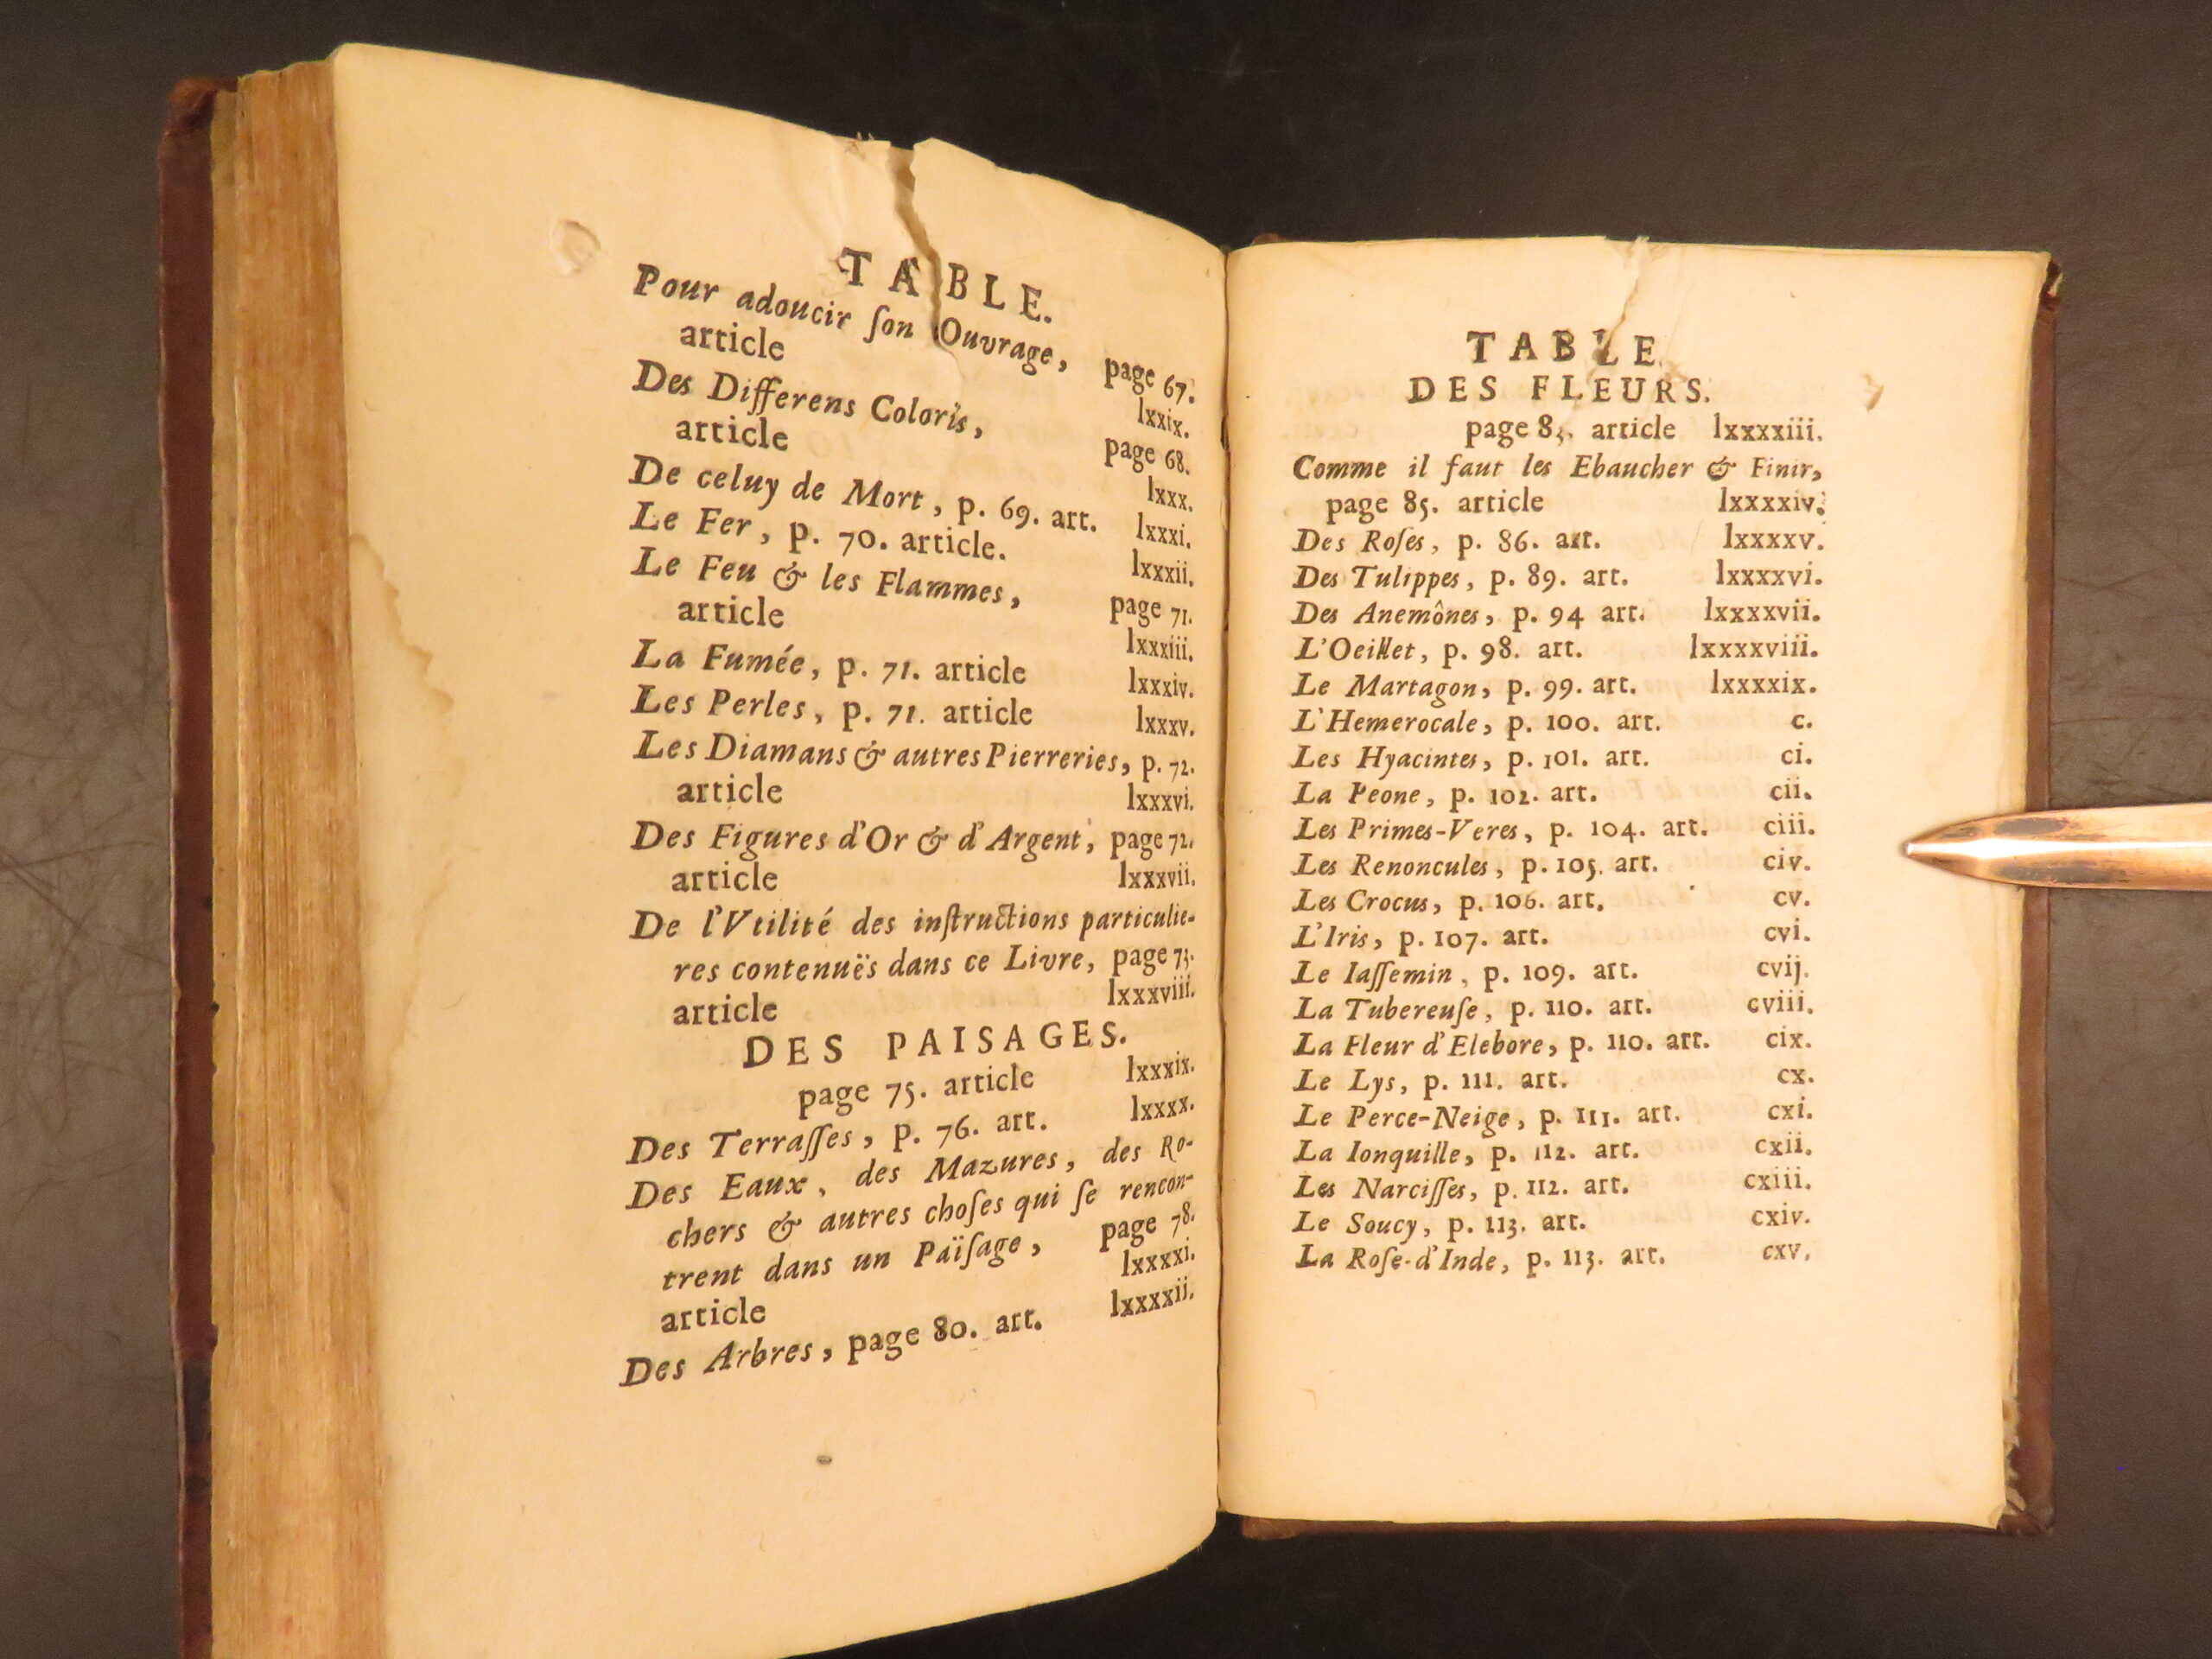 TABLE.
Pour adoucir ſon Ouvrage, page 67.
article lxxix.
Des Differens Coloris, page 68.
article lxxx.
De celuy de Mort, p. 69. art. lxxxi.
Le Fer, p. 70. article. lxxxii.
Le Feu & les Flammes, page 71.
article lxxxiii.
La Fumée, p. 71. article lxxxiv.
Les Perles, p. 71. article lxxxv.
Les Diamans & autres Pierreries, p. 72.
article lxxxvi.
Des Figures d'Or & d'Argent, page 72.
article lxxxvii.
De l'Vtilité des inſtructions particulie-
res contenuës dans ce Livre, page 73.
article lxxxviii.
DES PAISAGES.
page 75. article lxxxix.
Des Terraſſes, p. 76. art. lxxxx.
Des Eaux, des Mazures, des Ro-
chers & autres choſes qui ſe rencon-
trent dans un Païſage, page 78.
article lxxxxi.
Des Arbres, page 80. art. lxxxxii.
TABLE
DES FLEURS.
page 83. article lxxxxiii.
Comme il faut les Ebaucher & Finir,
page 85. article lxxxxiv.
Des Roſes, p. 86. art. lxxxxv.
Des Tulippes, p. 89. art. lxxxxvi.
Des Anemônes, p. 94 art. lxxxxvii.
L'Oeillet, p. 98. art. lxxxxviii.
Le Martagon, p. 99. art. lxxxxix.
L'Hemerocale, p. 100. art. c.
Les Hyacintes, p. 101. art. ci.
La Peone, p. 102. art. cii.
Les Primes-Veres, p. 104. art. ciii.
Les Renoncules, p. 105. art. civ.
Les Crocus, p. 106. art. cv.
L'Iris, p. 107. art. cvi.
Le Iaſſemin, p. 109. art. cvij.
La Tubereuſe, p. 110. art. cviii.
La Fleur d'Elebore, p. 110. art. cix.
Le Lys, p. 111. art. cx.
Le Perce-Neige, p. 111. art. cxi.
La Ionquille, p. 112. art. cxii.
Les Narciſſes, p. 112. art. cxiii.
Le Soucy, p. 113. art. cxiv.
La Roſe-d'Inde, p. 113. art. cxv.